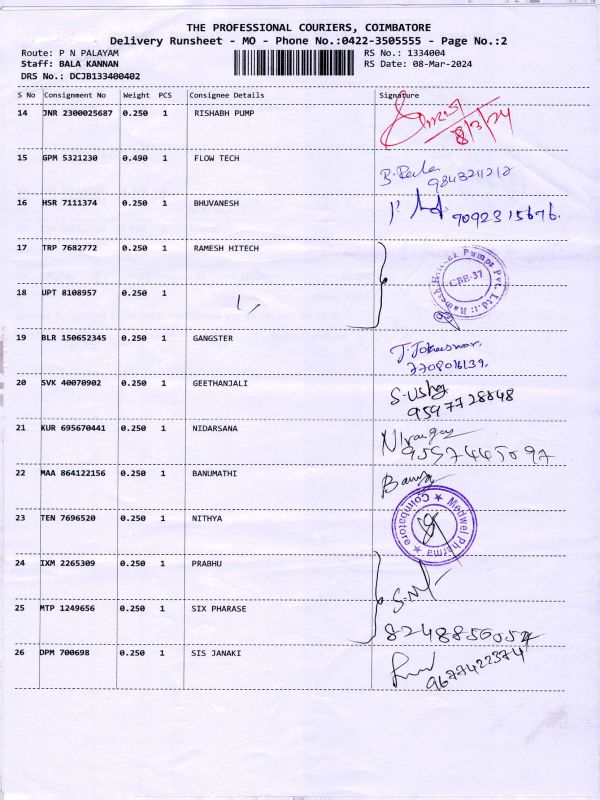 THE PROFESSIONAL COURIERS, COIMBATORE
Delivery Runsheet - MO - Phone No.:0422-3505555 - Page No.:2
Route: P N PALAYAM RS No.: 1334004
Staff: BALA KANNAN RS Date: 08-Mar-2024
DRS No.: DCJB133400402
S No Consignment No Weight PCS Consignee Details Signature
14 JNR 2300025687 0.250 1 RISHABH PUMP 8/3/24
15 GPM 5321230 0.490 1 FLOW TECH 9843211212
16 HSR 7111374 0.250 1 BHUVANESH 7092315676.
17 TRP 7682772 0.250 1 RAMESH HITECH
Pumps Pvt. Ltd.
CBE-37
18 UPT 8108957 0.250 1
19 BLR 150652345 0.250 1 GANGSTER
7708016139.
20 SVK 40070902 0.250 1 GEETHANJALI S. Usha
9597728848
21 KUR 695670441 0.250 1 NIDARSANA
9597445097
22 MAA 864122156 0.250 1 BANUMATHI
23 TEN 7696520 0.250 1 NITHYA
Medwel Pharma ★ Coimbatore ★
24 IXM 2265309 0.250 1 PRABHU
25 MTP 1249656 0.250 1 SIX PHARASE
8248856054
26 DPM 700698 0.250 1 SIS JANAKI
9677422374